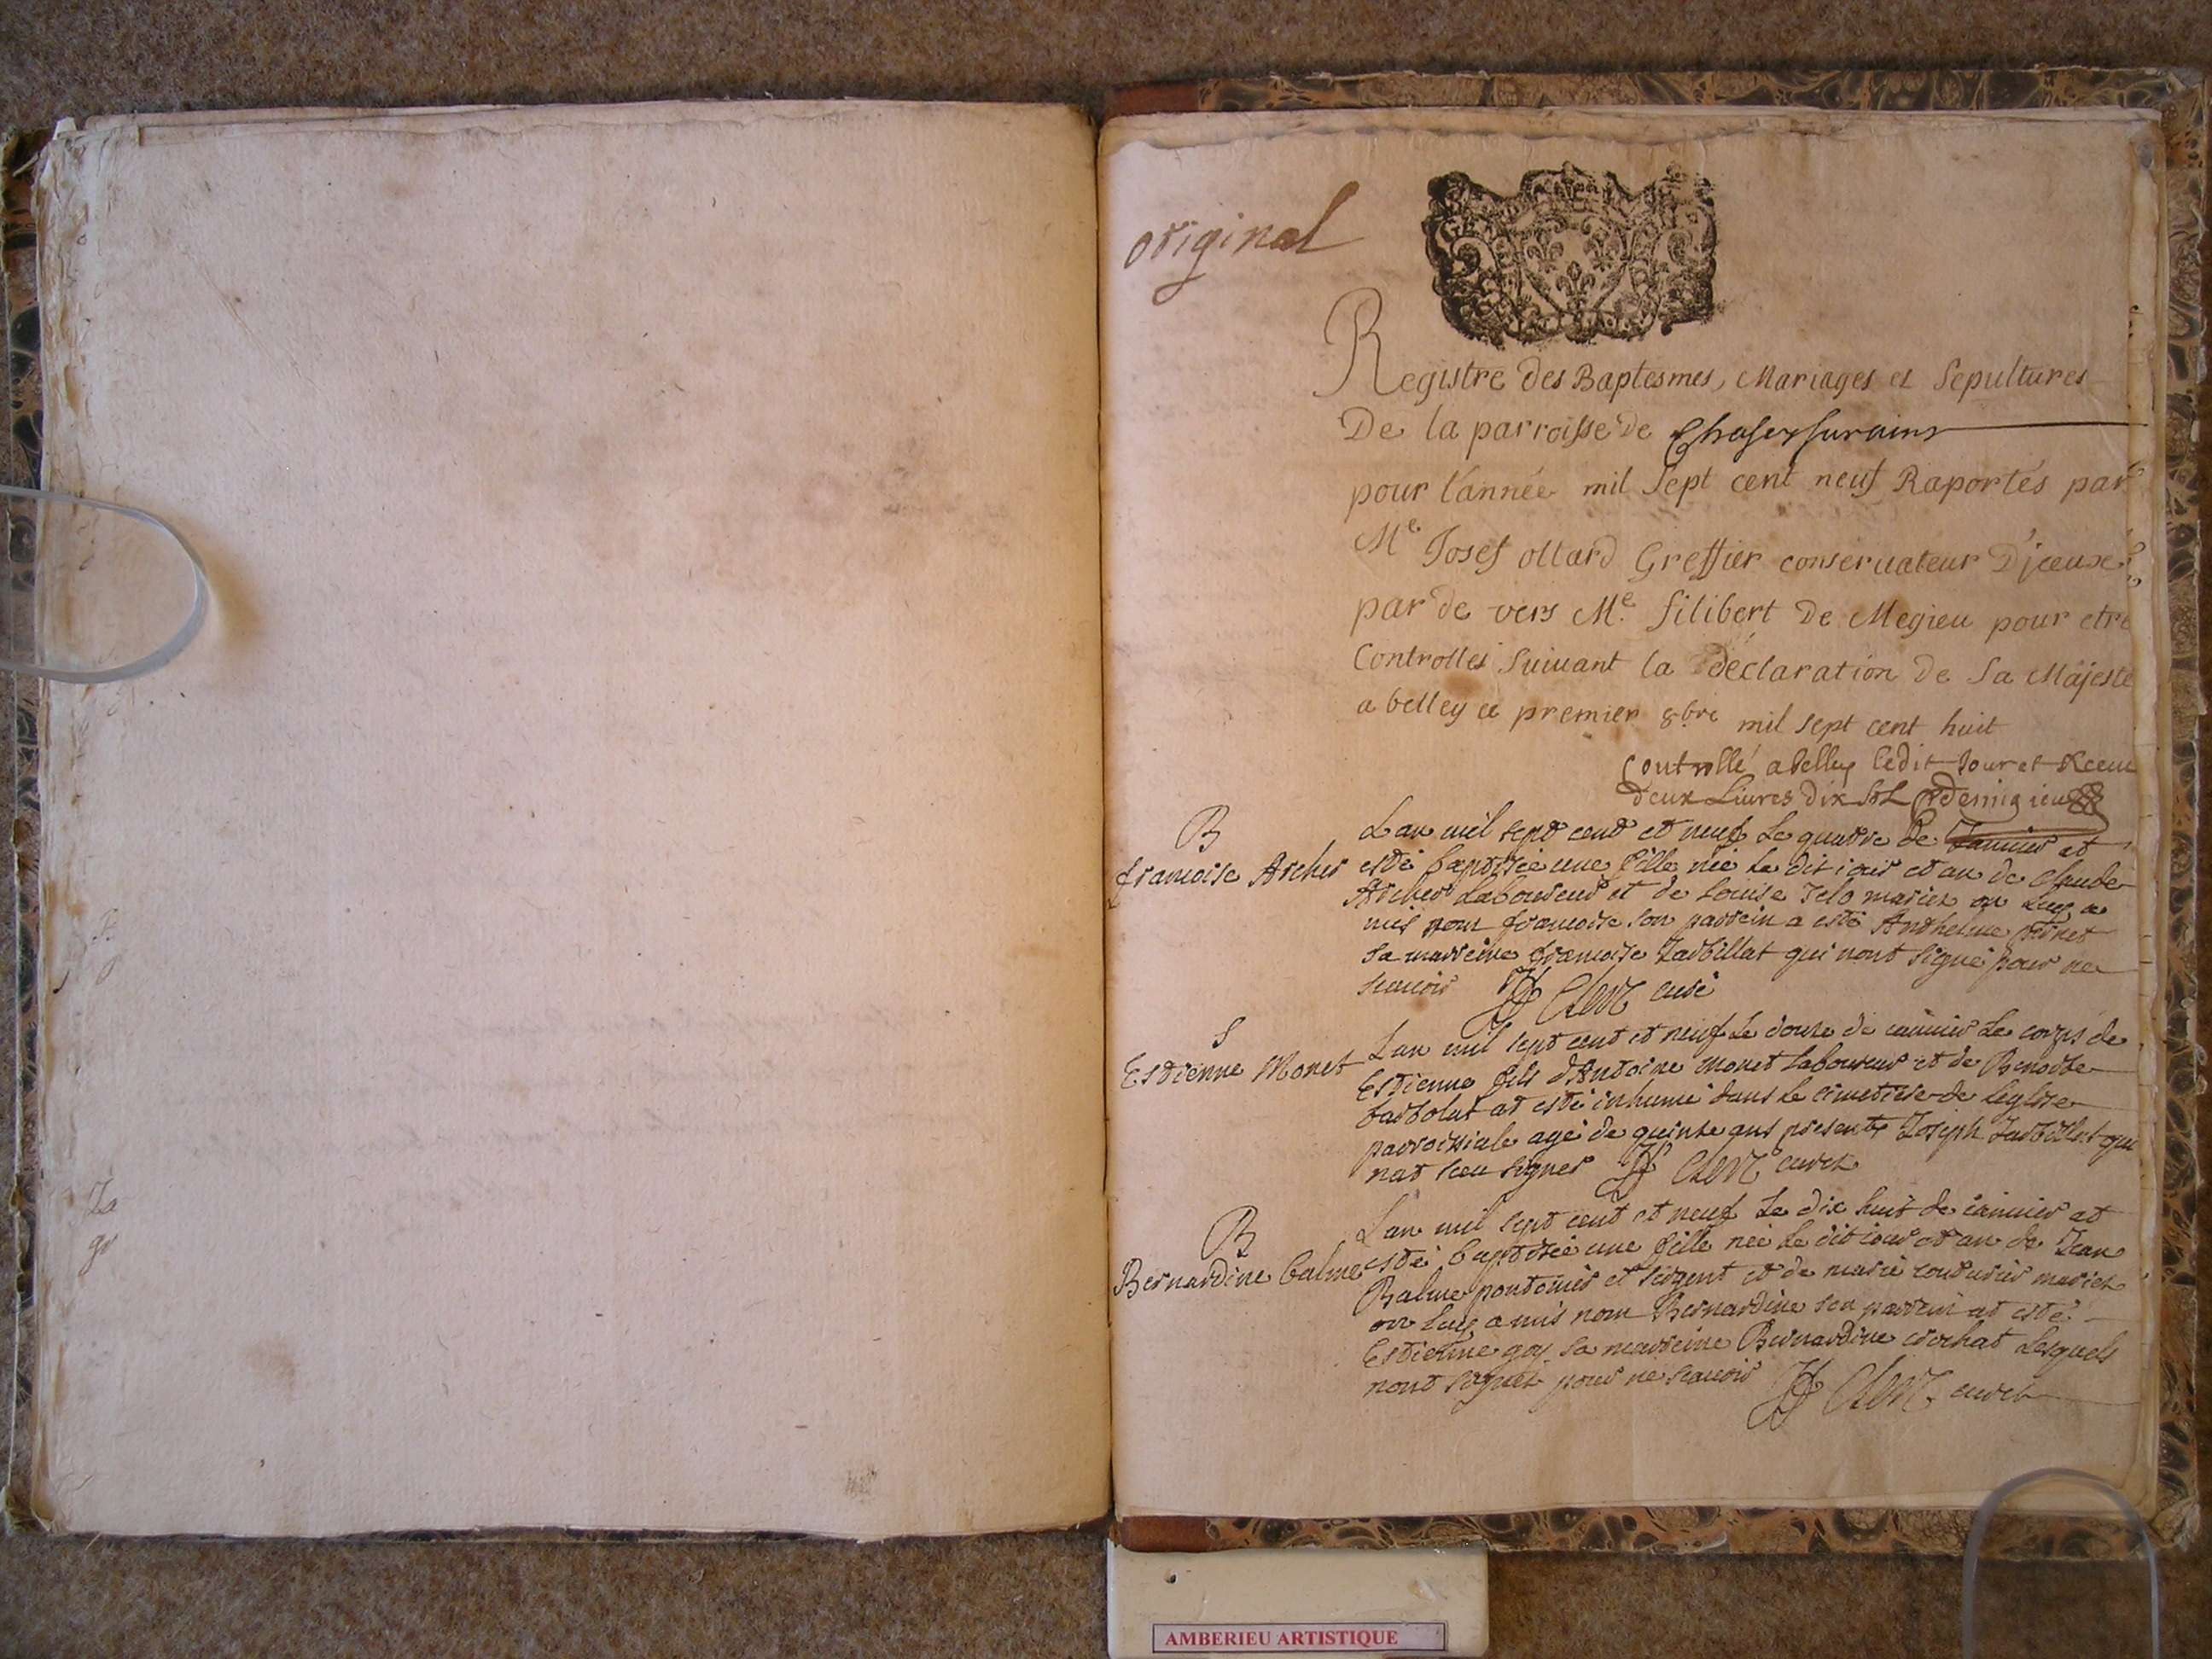 original
Registre des Baptesmes, Mariages et Sepultures
De la parroisse de Chasey sur ains
pour l'année mil sept cent neuf Raportés par
Me Josef ollard Greffier conseruateur D'jceux
par de vers Me. filibert De Megieu pour etre
Controlles suiuant la déclaration de sa Majesté
a belley ce premier 8bre mil sept cent huit
Controllé a belley ledit Jour et Receu
deux Liures dix sols
B
francoise Archer
Lan mil sept cent et neuf le quatre de Januier at
esté baptisée une fille née le dit iour et an de Claude
Archer Laboureur et de Louise mariez on luy a
mis nom francoise son parrein a esté Anthelme
sa marreine francoise Jarbillat qui nont signé pour ne
scauoir Clerc curé
S
Estienne Monet
Lan mil sept cent et neuf le douze de ianuier le corps de
Estienne fils dAntoine monet laboureur et de Benoite
at esté inhumé dans le cimetiere de leglise
parroissiale agé de quinze ans present Joseph Jarbillat qui
nat sceu signer Clerc curez
B
Bernardine balme
Lan mil sept cent et neuf le dix huit de ianuier at
esté baptisée une fille née le dit iour et an de Jean
Balme pontonier et sergent et de marie couturier mariez
on luy a mis nom Bernardine son parrein at esté
Estienne goy sa marreine Bernardine crochat lesquels
nont signez pour ne scauoir Clerc curez
Ja
gr
AMBERIEU ARTISTIQUE